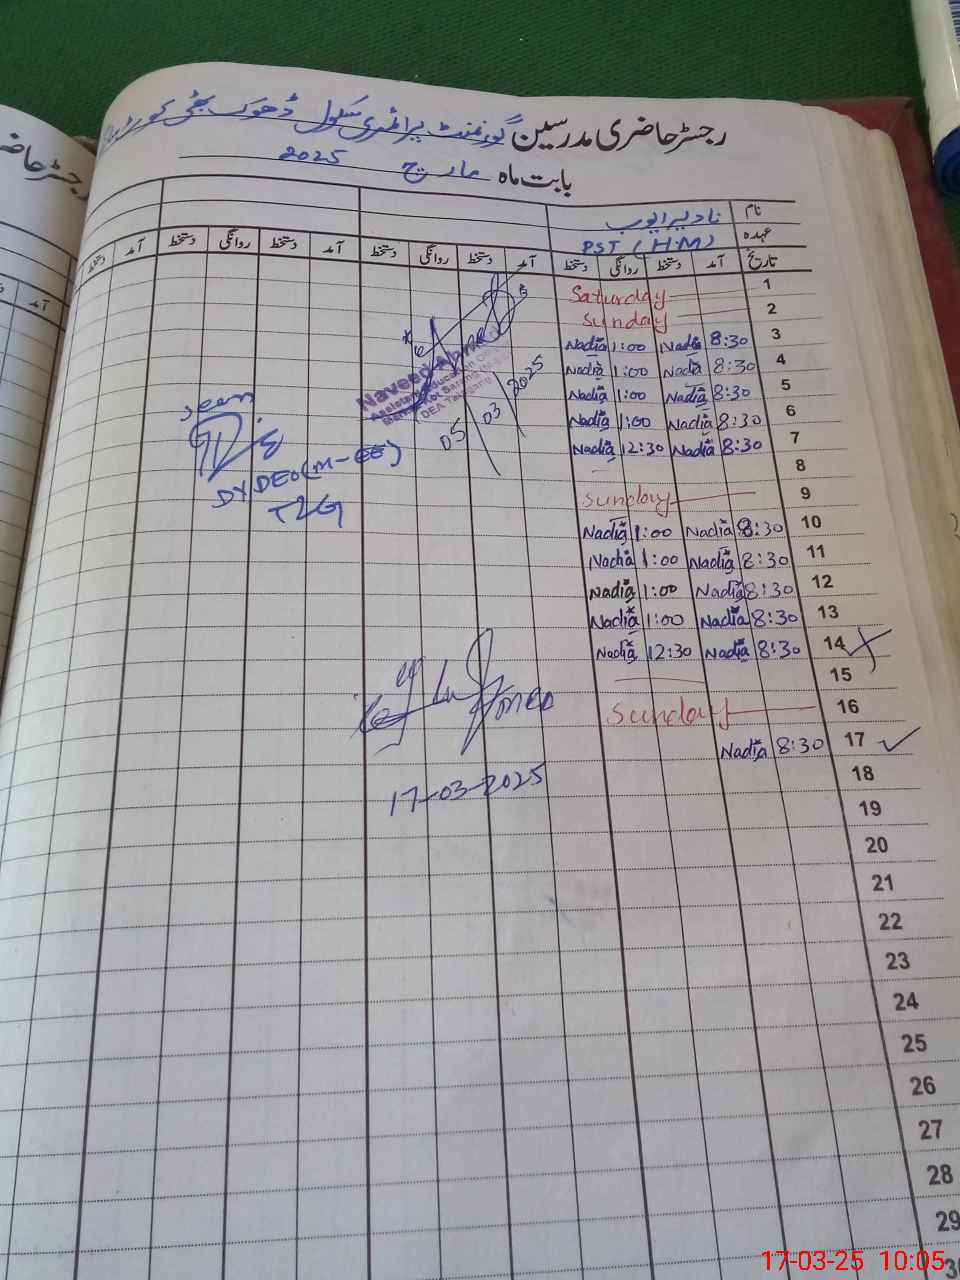 رجسٹر حاضری مدرسین گورنمنٹ پرائمری سکول ڈھوک بھٹی
بابت ماہ مارچ 2025
نام نادیہ ایوب
عہدہ PST (H.M)
تاریخ آمد دستخط روانگی دستخط آمد دستخط روانگی دستخط آمد دستخط روانگی دستخط آمد دستخط
1 Saturday
2 Sunday
3 8:30 Nadia 1:00 Nadia
4 8:30 Nadia 1:00 Nadia
5 8:30 Nadia 1:00 Nadia
6 8:30 Nadia 1:00 Nadia
7 8:30 Nadia 12:30 Nadia
8
9 Sunday
10 8:30 Nadia 1:00 Nadia
11 8:30 Nadia 1:00 Nadia
12 8:30 Nadia 1:00 Nadia
13 8:30 Nadia 1:00 Nadia
14 8:30 Nadia 12:30 Nadia
15
16 Sunday
17 8:30 Nadia
18
19
20
21
22
23
24
25
26
27
28
29
Naveed Ahmed
Assistant Education
DEA
05 03 2025
seen
DY DEO (M-EE)
TLG
17-03-2025
رجسٹر
آمد
17-03-25 10:05